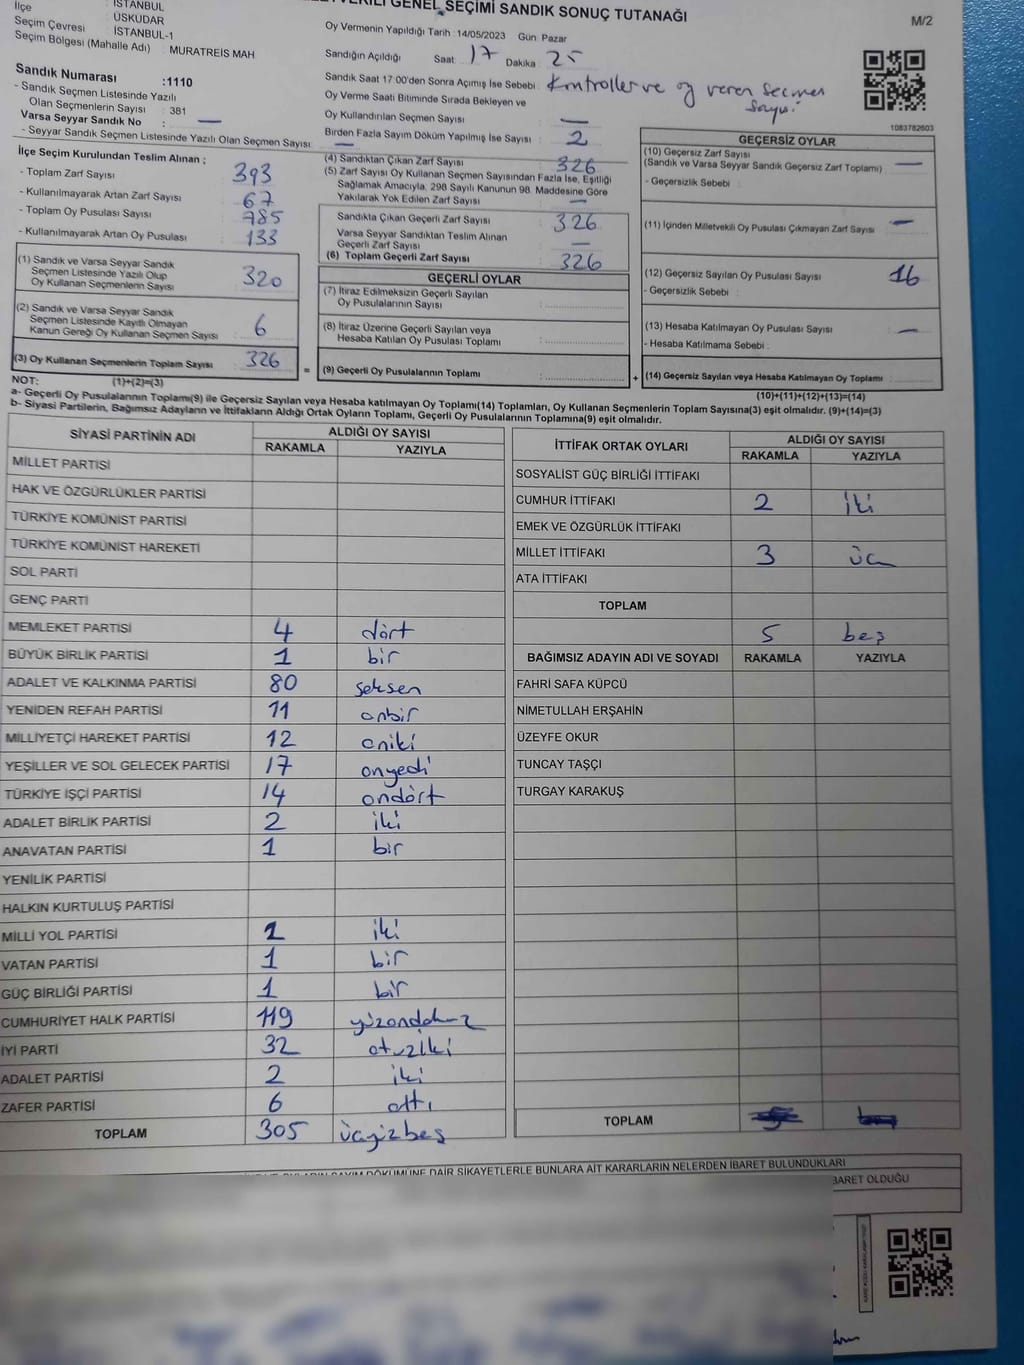 İlçe : İSTANBUL
Seçim Çevresi : ÜSKÜDAR
Seçim Bölgesi (Mahalle Adı) : İSTANBUL-1
MURATREİS MAH
GENEL SEÇİMİ SANDIK SONUÇ TUTANAĞI
M/2
Oy Vermenin Yapıldığı Tarih :14/05/2023 Gün Pazar
Sandığın Açıldığı Saat 17 Dakika 25
Sandık Saat 17:00'den Sonra Açımış İse Sebebi : Kontroller ve oy veren seçmen sayısı
Oy Verme Saati Bitiminde Sırada Bekleyen ve
Oy Kullandırılan Seçmen Sayısı : —
Birden Fazla Sayım Döküm Yapılmış İse Sayısı : 2
1083782603
Sandık Numarası :1110
- Sandık Seçmen Listesinde Yazılı
Olan Seçmenlerin Sayısı : 381
Varsa Seyyar Sandık No : —
- Seyyar Sandık Seçmen Listesinde Yazılı Olan Seçmen Sayısı: —
İlçe Seçim Kurulundan Teslim Alınan ;
- Toplam Zarf Sayısı : 393
- Kullanılmayarak Artan Zarf Sayısı : 67
- Toplam Oy Pusulası Sayısı : 785
- Kullanılmayarak Artan Oy Pusulası : 133
(1) Sandık ve Varsa Seyyar Sandık
Seçmen Listesinde Yazılı Olup
Oy Kullanan Seçmenlerin Sayısı : 320
(2) Sandık ve Varsa Seyyar Sandık
Seçmen Listesinde Kayıtlı Olmayan
Kanun Gereği Oy Kullanan Seçmen Sayısı : 6
(3) Oy Kullanan Seçmenlerin Toplam Sayısı : 326
(4) Sandıktan Çıkan Zarf Sayısı : 326
(5) Zarf Sayısı Oy Kullanan Seçmen Sayısından Fazla İse, Eşitliği
Sağlamak Amacıyla, 298 Sayılı Kanunun 98. Maddesine Göre
Yakılarak Yok Edilen Zarf Sayısı : —
Sandıkta Çıkan Geçerli Zarf Sayısı : 326
Varsa Seyyar Sandıktan Teslim Alınan
Geçerli Zarf Sayısı : —
(6) Toplam Geçerli Zarf Sayısı : 326
GEÇERLİ OYLAR
(7) İtiraz Edilmeksizin Geçerli Sayılan
Oy Pusulalarının Sayısı :
(8) İtiraz Üzerine Geçerli Sayılan veya
Hesaba Katılan Oy Pusulası Toplamı :
= (9) Geçerli Oy Pusulalarının Toplamı : +
GEÇERSİZ OYLAR
(10) Geçersiz Zarf Sayısı
(Sandık ve Varsa Seyyar Sandık Geçersiz Zarf Toplamı) : —
- Geçersizlik Sebebi :
(11) İçinden Milletvekili Oy Pusulası Çıkmayan Zarf Sayısı : —
(12) Geçersiz Sayılan Oy Pusulası Sayısı : 16
- Geçersizlik Sebebi :
(13) Hesaba Katılmayan Oy Pusulası Sayısı : —
- Hesaba Katılmama Sebebi :
(14) Geçersiz Sayılan veya Hesaba Katılmayan Oy Toplamı :
NOT: (1)+(2)=(3) (10)+(11)+(12)+(13)=(14)
a- Geçerli Oy Pusulasının Toplamı(9) ile Geçersiz Sayılan veya Hesaba katılmayan Oy Toplamı(14) Toplamları, Oy Kullanan Seçmenlerin Toplam Sayısına(3) eşit olmalıdır. (9)+(14)=(3)
b- Siyasi Partilerin, Bağımsız Adayların ve İttifakların Aldığı Ortak Oyların Toplamı, Geçerli Oy Pusulalarının Toplamına(9) eşit olmalıdır.
SİYASİ PARTİNİN ADI ALDIĞI OY SAYISI
RAKAMLA YAZIYLA
MİLLET PARTİSİ
HAK VE ÖZGÜRLÜKLER PARTİSİ
TÜRKİYE KOMÜNİST PARTİSİ
TÜRKİYE KOMÜNİST HAREKETİ
SOL PARTİ
GENÇ PARTİ
MEMLEKET PARTİSİ 4 dört
BÜYÜK BİRLİK PARTİSİ 1 bir
ADALET VE KALKINMA PARTİSİ 80 seksen
YENİDEN REFAH PARTİSİ 11 onbir
MİLLİYETÇİ HAREKET PARTİSİ 12 oniki
YEŞİLLER VE SOL GELECEK PARTİSİ 17 onyedi
TÜRKİYE İŞÇİ PARTİSİ 14 ondört
ADALET BİRLİK PARTİSİ 2 iki
ANAVATAN PARTİSİ 1 bir
YENİLİK PARTİSİ
HALKIN KURTULUŞ PARTİSİ
MİLLİ YOL PARTİSİ 2 iki
VATAN PARTİSİ 1 bir
GÜÇ BİRLİĞİ PARTİSİ 1 bir
CUMHURİYET HALK PARTİSİ 119 yüzondokuz
İYİ PARTİ 32 otuziki
ADALET PARTİSİ 2 iki
ZAFER PARTİSİ 6 altı
TOPLAM 305 üçyüzbeş
İTTİFAK ORTAK OYLARI ALDIĞI OY SAYISI
RAKAMLA YAZIYLA
SOSYALİST GÜÇ BİRLİĞİ İTTİFAKI
CUMHUR İTTİFAKI 2 iki
EMEK VE ÖZGÜRLÜK İTTİFAKI
MİLLET İTTİFAKI 3 üç
ATA İTTİFAKI
TOPLAM
5 beş
BAĞIMSIZ ADAYIN ADI VE SOYADI RAKAMLA YAZIYLA
FAHRİ SAFA KÜPCÜ
NİMETULLAH ERŞAHİN
ÜZEYFE OKUR
TUNCAY TAŞÇI
TURGAY KARAKUŞ
TOPLAM
DÖKÜMÜNE DAİR ŞİKAYETLERLE BUNLARA AİT KARARLARIN NELERDEN İBARET BULUNDUKLARI
İBARET OLDUĞU